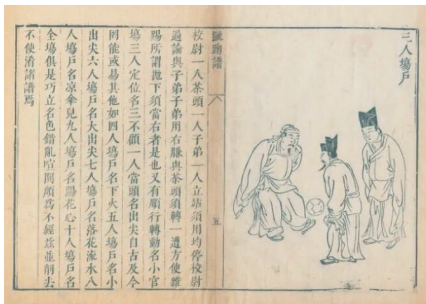 三人塲戶
蹴踘譜
五
校尉一人茶頭一人子弟一人立站須用均停校尉
過論與子弟子弟用右臁與茶頭須轉一遭方使雜
踢所謂拋下須當右者是也又有順行轉動名小官
塲三人定位名三不顧一人當頭名出尖自古及今
因能或易其他如四人塲戶名下火五人塲戶名小
出尖六人塲戶名大出尖七人塲戶名落花流水八
人塲戶名凉傘兒九人塲戶名踢花心十人塲戶名
全塲俱是巧立名色錯亂喧鬧頗為不經茲並削去
不使淆諸譜焉